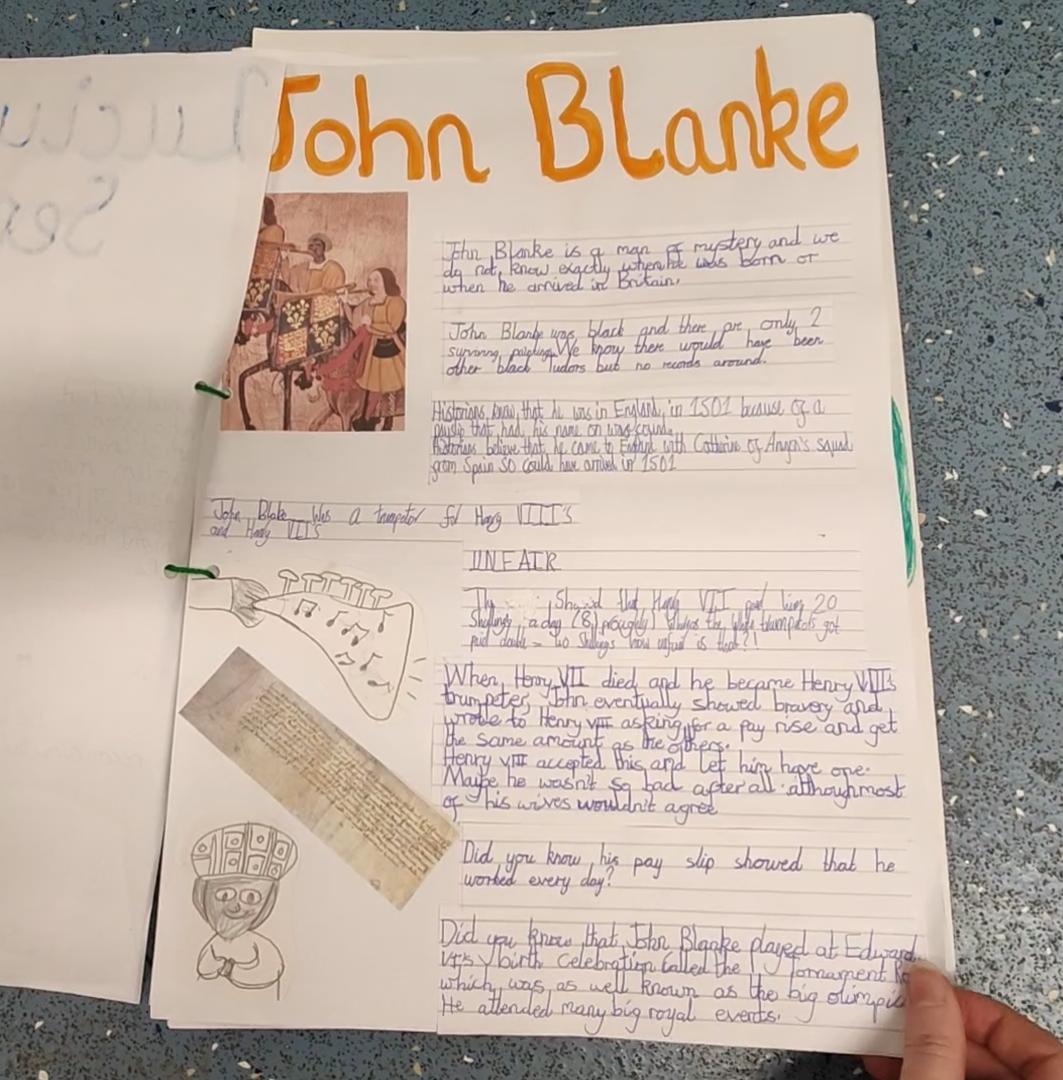 John Blanke
John Blanke is a man of mystery and we
do not know exactly when he was born or
when he arrived in Britain.
John Blanke was black and there are only 2
surviving paintings. We know there would have been
other black Tudors but no records around.
Historians know that he was in England in 1501 because of a
that had his name on was found.
Historians believe that he came to England with Catherine of squad
from Spain so could have arrived in 1501
John Blake was a trumpetor for Henry VIII's
and Henry VII's
UNFAIR
that Henry VII paid him 20
Shillings a day (8 the white trumpetors got
paid double = 40 Shillings how unfair is that?!
When Henry VII died and he became Henry VIII's
trumpeter, John eventually showed bravery and
wrote to Henry VIII asking for a pay rise and get
the same amount as the others.
Henry VIII accepted this and let him have one.
Maybe he wasn't so bad after all although most
of his wives wouldn't agree
Did you know his pay slip showed that he
worked every day?
Did you know that John Blanke played at Edward
VI's birth celebration called the
which was as well known as the big
He attended many big royal events.